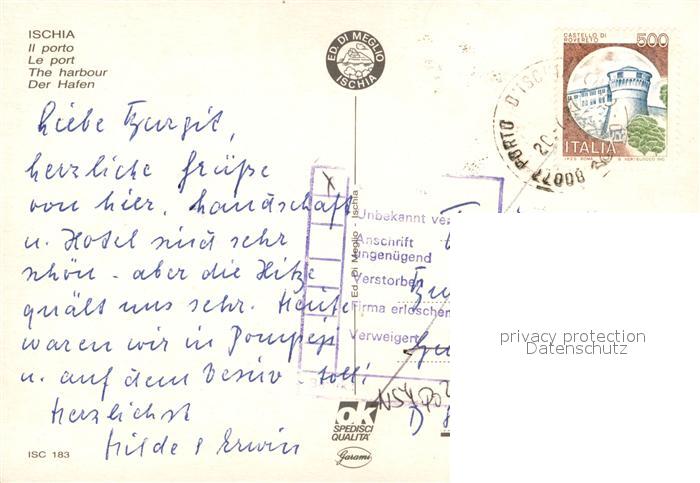 ISCHIA
Il porto
Le port
The harbour
Der Hafen
ED. DI MEGLIO
ISCHIA
CASTELLO DI
ROVERETO
500
ITALIA
80077 PORTO D'ISCHIA
20
Liebe Burgit,
herzliche Grüße
von hier. Landschaft
u. Hotel sind sehr
schön - aber die Hitze
quält uns sehr. Heute
waren wir in Pompeji
u. auf dem Vesuv - toll!
Herzlichst
Hilde & Erwin
X
Unbekannt ver
Anschrift
ungenügend
Verstorben
Firma erloschen
Verweigert
Ed. Di Meglio - Ischia
D
ok
SPEDISCI
QUALITA'
Garami
ISC 183
privacy protection
Datenschutz